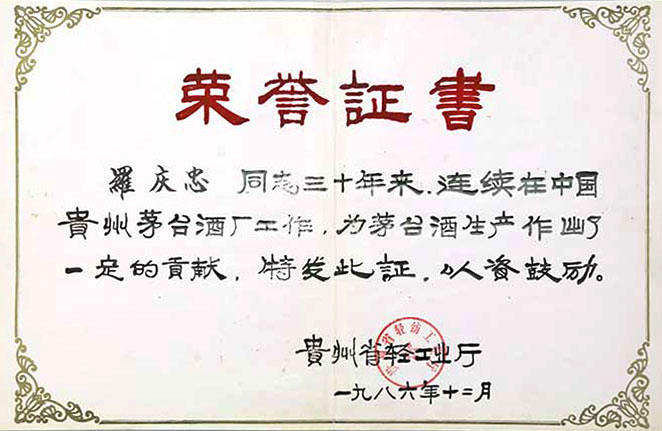 荣誉証書
羅庆忠 同志三十年来,连续在中国
貴州茅台酒厂工作,为茅台酒生产作出了
一定的貢献,特发此証,以资鼓励。
貴州省轻工业厅
一九八六年十二月